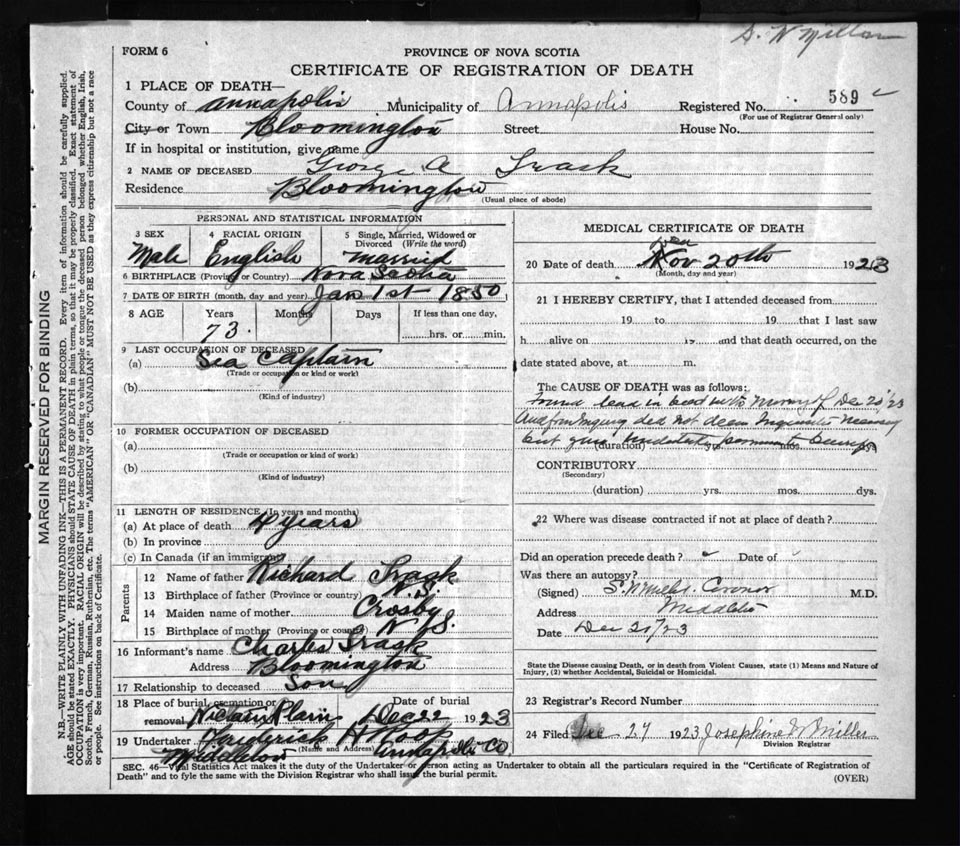 S. N Miller
FORM 6
PROVINCE OF NOVA SCOTIA
CERTIFICATE OF REGISTRATION OF DEATH
1 PLACE OF DEATH—
County of Annapolis Municipality of Annapolis Registered No. 589
(For use of Registrar General only)
City or Town Bloomington Street House No.
If in hospital or institution, give name
2 NAME OF DECEASED George A Trask
Residence Bloomington
(Usual place of abode)
PERSONAL AND STATISTICAL INFORMATION
3 SEX 4 RACIAL ORIGIN 5 Single, Married, Widowed or Divorced (Write the word)
Male English Married
6 BIRTHPLACE (Province or Country) Nova Scotia
7 DATE OF BIRTH (month, day and year) Jan 1st 1850
8 AGE Years Months Days If less than one day,
73. hrs. or min.
9 LAST OCCUPATION OF DECEASED
(a) Sea Captain
(Trade or occupation or kind or work)
(b)
(Kind of industry)
10 FORMER OCCUPATION OF DECEASED
(a)
(Trade or occupation or kind or work)
(b)
(Kind of industry)
11 LENGTH OF RESIDENCE (In years and months)
(a) At place of death 4 years
(b) In province
(c) In Canada (if an immigrant)
Parents
12 Name of father Richard Trask
13 Birthplace of father (Province or country) N.S.
14 Maiden name of mother Crosby
15 Birthplace of mother (Province or country) N.S.
16 Informant's name Charles Trask
Address Bloomington
17 Relationship to deceased Son
18 Place of burial, cremation or removal Nictaux Plain Date of burial Dec 22 1923
19 Undertaker Frederick H Roop
(Name and Address)
Middleton Annapolis Co
MEDICAL CERTIFICATE OF DEATH
Dec
20 Date of death Nov 20th 1923
(Month, day and year)
21 I HEREBY CERTIFY, that I attended deceased from
19 to 19 that I last saw
h alive on 19 and that death occurred, on the
date stated above, at m.
The CAUSE OF DEATH was as follows:
Found dead in bed Morning of Dec 20/23
And from Inquiry did not deem necessary
but gave
(duration) yrs. mos. dys.
CONTRIBUTORY
(Secondary)
(duration) yrs. mos. dys.
22 Where was disease contracted if not at place of death?
Did an operation precede death? Date of
Was there an autopsy?
(Signed) Coroner M.D.
Address Middleton
Date Dec 21/23
State the Disease causing Death, or in death from Violent Causes, state (1) Means and Nature of
Injury, (2) whether Accidental, Suicidal or Homicidal.
23 Registrar's Record Number
24 Filed Dec 27 1923 Josephine N Miller
Division Registrar
SEC. 46—Vital Statistics Act makes it the duty of the Undertaker or person acting as Undertaker to obtain all the particulars required in the "Certificate of Registration of
Death" and to fyle the same with the Division Registrar who shall issue the burial permit.
(OVER)
MARGIN RESERVED FOR BINDING
N.B.—WRITE PLAINLY WITH UNFADING INK—THIS IS A PERMANENT RECORD. Every item of information should be carefully supplied.
AGE should be stated EXACTLY. PHYSICIANS should STATE CAUSE OF DEATH in plain terms, so that it may be properly classified. Exact statement of
OCCUPATION is very important. RACIAL ORIGIN will be described by stating to what people or tongue the deceased person belonged whether English, Irish,
Scotch, French, German, Russian, Ruthenian, etc. The terms "AMERICAN" OR "CANADIAN" MUST NOT BE USED as they express citizenship but not a race
or people. See instructions on back of Certificate.